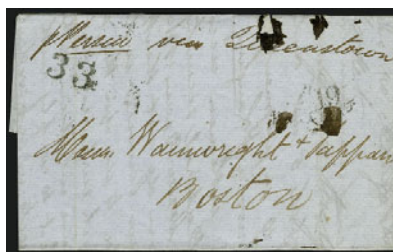 via Queenstown
33
19
Messrs Wainwright & Tappan
Boston